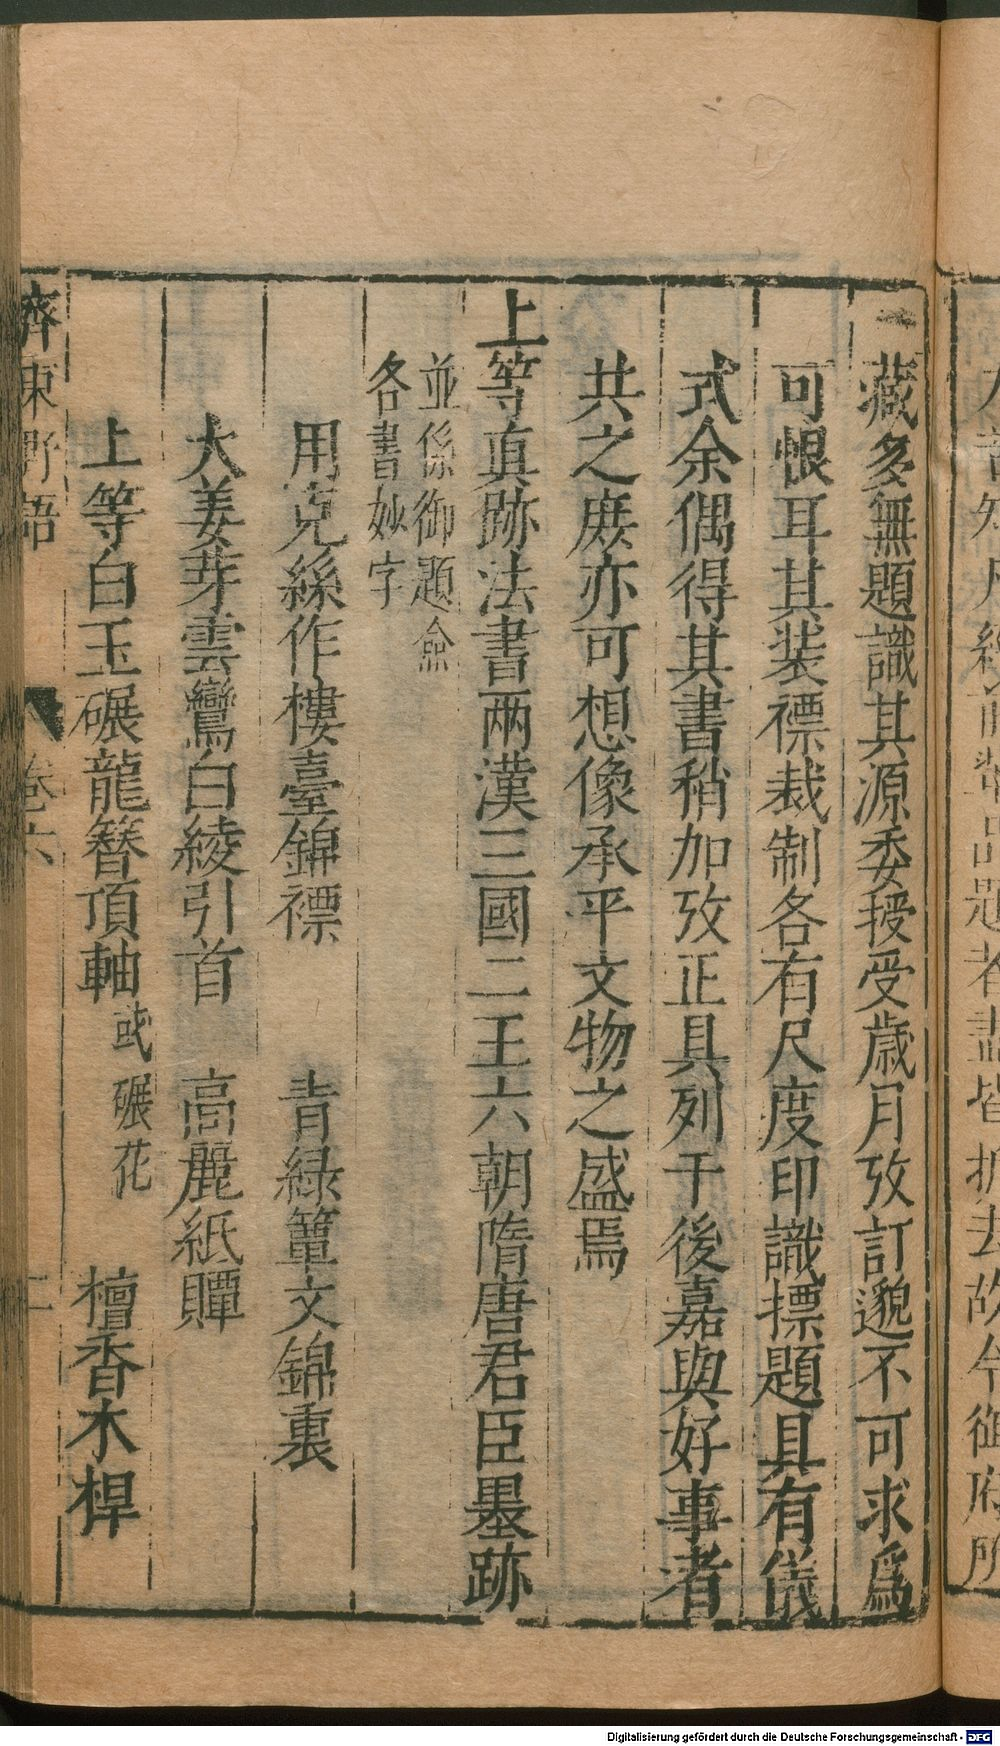 藏多無題識其源委授受歲月攷訂邈不可求爲
可恨耳其装褾裁制各有尺度印識摽題具有儀
式余偶得其書稍加攷正具列于後嘉與好事者
共之庻亦可想像承平文物之盛焉
上等真跡法書两漢三國二王六朝隋唐君臣墨跡
並係御題僉
各書妙字
用克絲作樓臺錦褾　青緑簟文錦裏
大姜芽雲鸞白綾引首　高麗紙贉
上等白玉碾龍簪頂軸或碾花　檀香木桿
齊東野語　卷六　二
去故今御府所
Digitalisierung gefördert durch die Deutsche Forschungsgemeinschaft - DFG